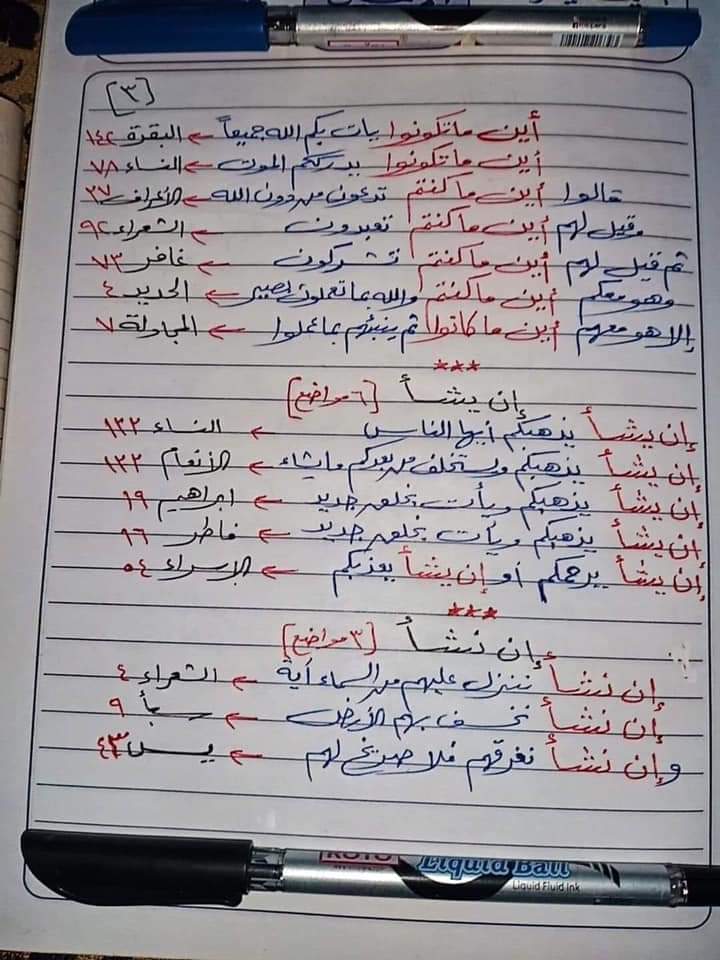 [٣]
أين ما تكونوا يأت بكم الله جميعاً ← البقرة ١٤٨
أين ما تكونوا يدرككم الموت ← النساء ٧٨
قالوا أين ما كنتم تدعون من دون الله ← الأعراف ٣٧
وقيل لهم أين ما كنتم تعبدون ← الشعراء ٩٢
ثم قيل لهم أين ما كنتم تشركون ← غافر ٧٣
وهو معكم أين ما كنتم والله بما تعملون بصير ← الحديد ٤
إلا هو معهم أين ما كانوا ثم ينبئهم بما عملوا ← المجادلة ٧
***
إن يشأ [٦ مواضع]
إن يشأ يذهبكم أيها الناس ← النساء ١٣٣
إن يشأ يذهبكم ويستخلف من بعدكم ما يشاء ← الأنعام ١٣٣
إن يشأ يذهبكم ويأت بخلق جديد ← ابراهيم ١٩
إن يشأ يذهبكم ويأت بخلق جديد ← فاطر ١٦
إن يشأ يرحمكم أو إن يشأ يعذبكم ← الإسراء ٥٤
***
إن نشأ [٣ مواضع]
إن نشأ ننزل عليهم من السماء آية ← الشعراء ٤
إن نشأ نخسف بهم الأرض ← سبأ ٩
وإن نشأ نغرقهم فلا صريخ لهم ← يس ٤٣
ROTO
Liquid Ball
Liquid Fluid Ink